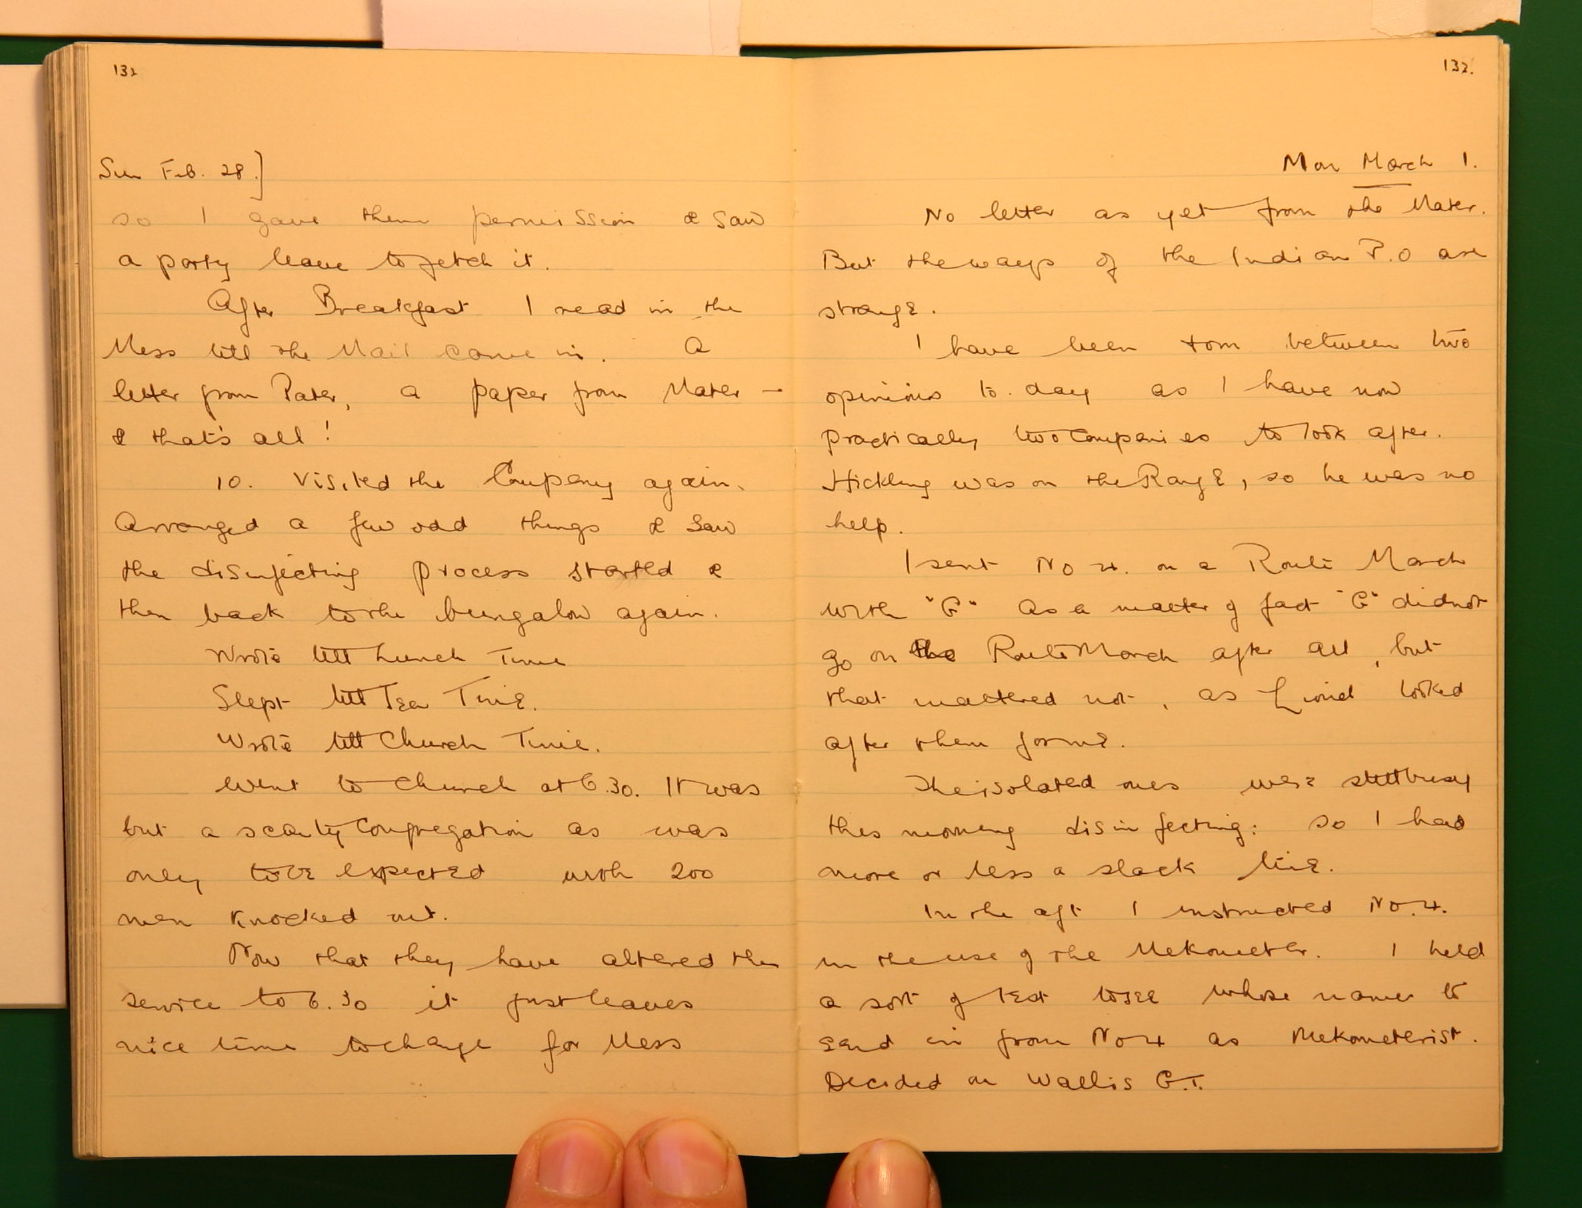 132
Sun Feb. 28.]
so I gave them permission & saw
a party leave to fetch it.
After Breakfast I read in the
Mess till the Mail came in. A
letter from Pater, a paper from Mater —
& that's all!
10. Visited the Company again.
Arranged a few odd things & saw
the disinfecting process started &
then back to the bungalow again.
Wrote till Lunch Time
Slept till Tea Time.
Wrote till Church Time.
Went to Church at 6.30. It was
but a scanty Congregation as was
only to be expected with 200
men knocked out.
Now that they have altered the
service to 6.30 it just leaves
nice time to change for Mess
132.
Mon March 1.
No letter as yet from the Mater.
But the ways of the Indian P.O are
strange.
I have been torn between two
opinions to.day as I have now
practically two Companies to look after.
Hickling was on the Range, so he was no
help.
I sent No 4. on a Route March
with "G" As a matter of fact "G" did not
go on the Route March after all, but
that mattered not, as looked
after them for me.
The isolated ones were still busy
this morning disinfecting: so I had
more or less a slack time.
In the aft I instructed No. 4.
in the use of the Mekometer. I held
a sort of test to see whose names to
send in from No 4 as Mekometerist.
Decided on Wallis G.T.